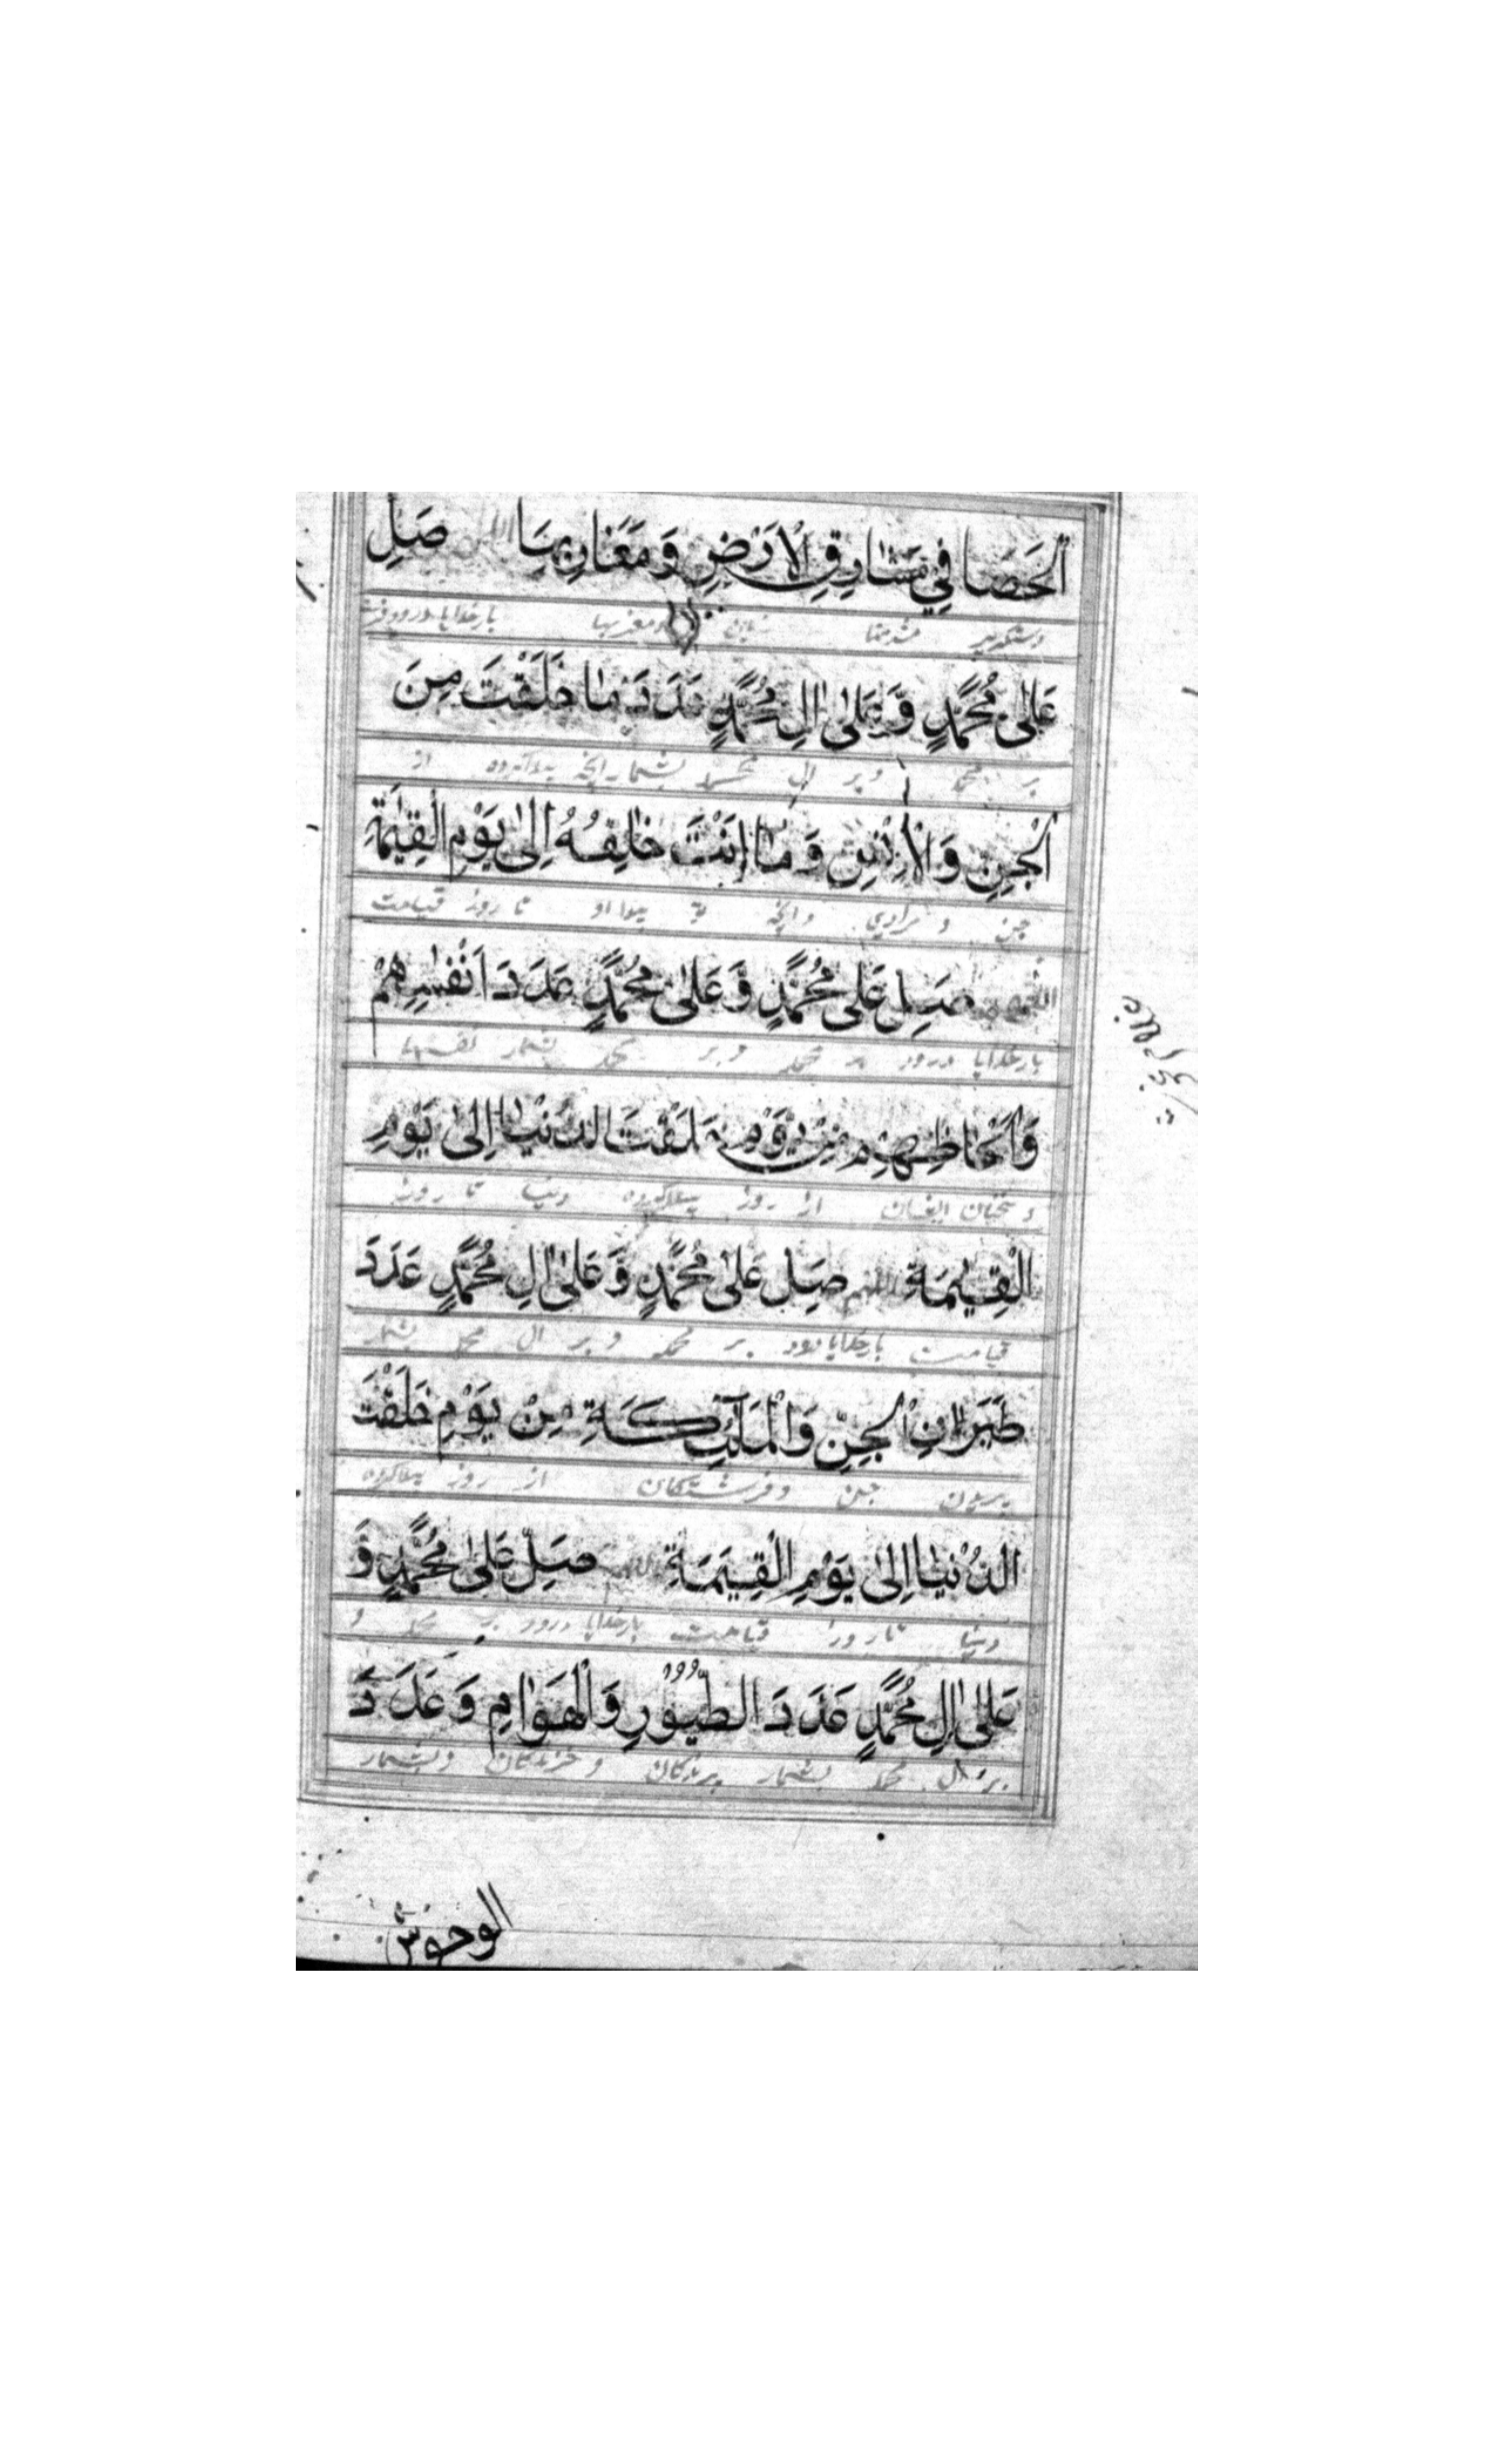 الْحَصَا فِي مَشَارِقِ الْاَرْضِ وَمَغَارِبِهَا اللهم صَلِّ
زمین ومغربها بارخدایا درود
عَلٰى مُحَمَّدٍ وَّعَلٰى اٰلِ مُحَمَّدٍ عَدَدَ مَا خَلَقْتَ مِنَ
بر محمد وبر ال محمد بشمار انچه پیدا کرده از
الْجِنِّ وَالْاِنْسِ وَمَا اَنْتَ خَالِقُهُ اِلٰى يَوْمِ الْقِيٰمَةِ
جن و وانچه تا روز قیامت
اللهم صَلِّ عَلٰى مُحَمَّدٍ وَّعَلٰى مُحَمَّدٍ عَدَدَ اَنْفَسِهِمْ
بارخدایا درود بر محمد و بر محمد بشمار نفسها
وَاَلْحَاظِهِمْ مِنْ يَوْمِ خَلَقْتَ الدُّنْيَا اِلٰى يَوْمِ
از روز پیدا کرده دنیا تا روز
الْقِيٰمَةِ اللهم صَلِّ عَلٰى مُحَمَّدٍ وَّعَلٰى اٰلِ مُحَمَّدٍ عَدَدَ
قیامت بارخدایا درود بر محمد و بر ال محمد بشمار
طَيَرَانِ الْجِنِّ وَالْمَلٰٓئِكَةِ مِنْ يَوْمِ خَلَقْتَ
پریدن جن وفرشتکان از روز پیدا کرده
الدُّنْيَا اِلٰى يَوْمِ الْقِيٰمَةِ اللهم صَلِّ عَلٰى مُحَمَّدٍ وَّ
دنیا تا روز قیامت بارخدایا درود بر محمد و
عَلٰى اٰلِ مُحَمَّدٍ عَدَدَ الطُّيُوْرِ وَالْهَوَامِ وَعَدَدَ
بر ال محمد بشمار پرندکان و خزندکان وبشمار
الوحوش